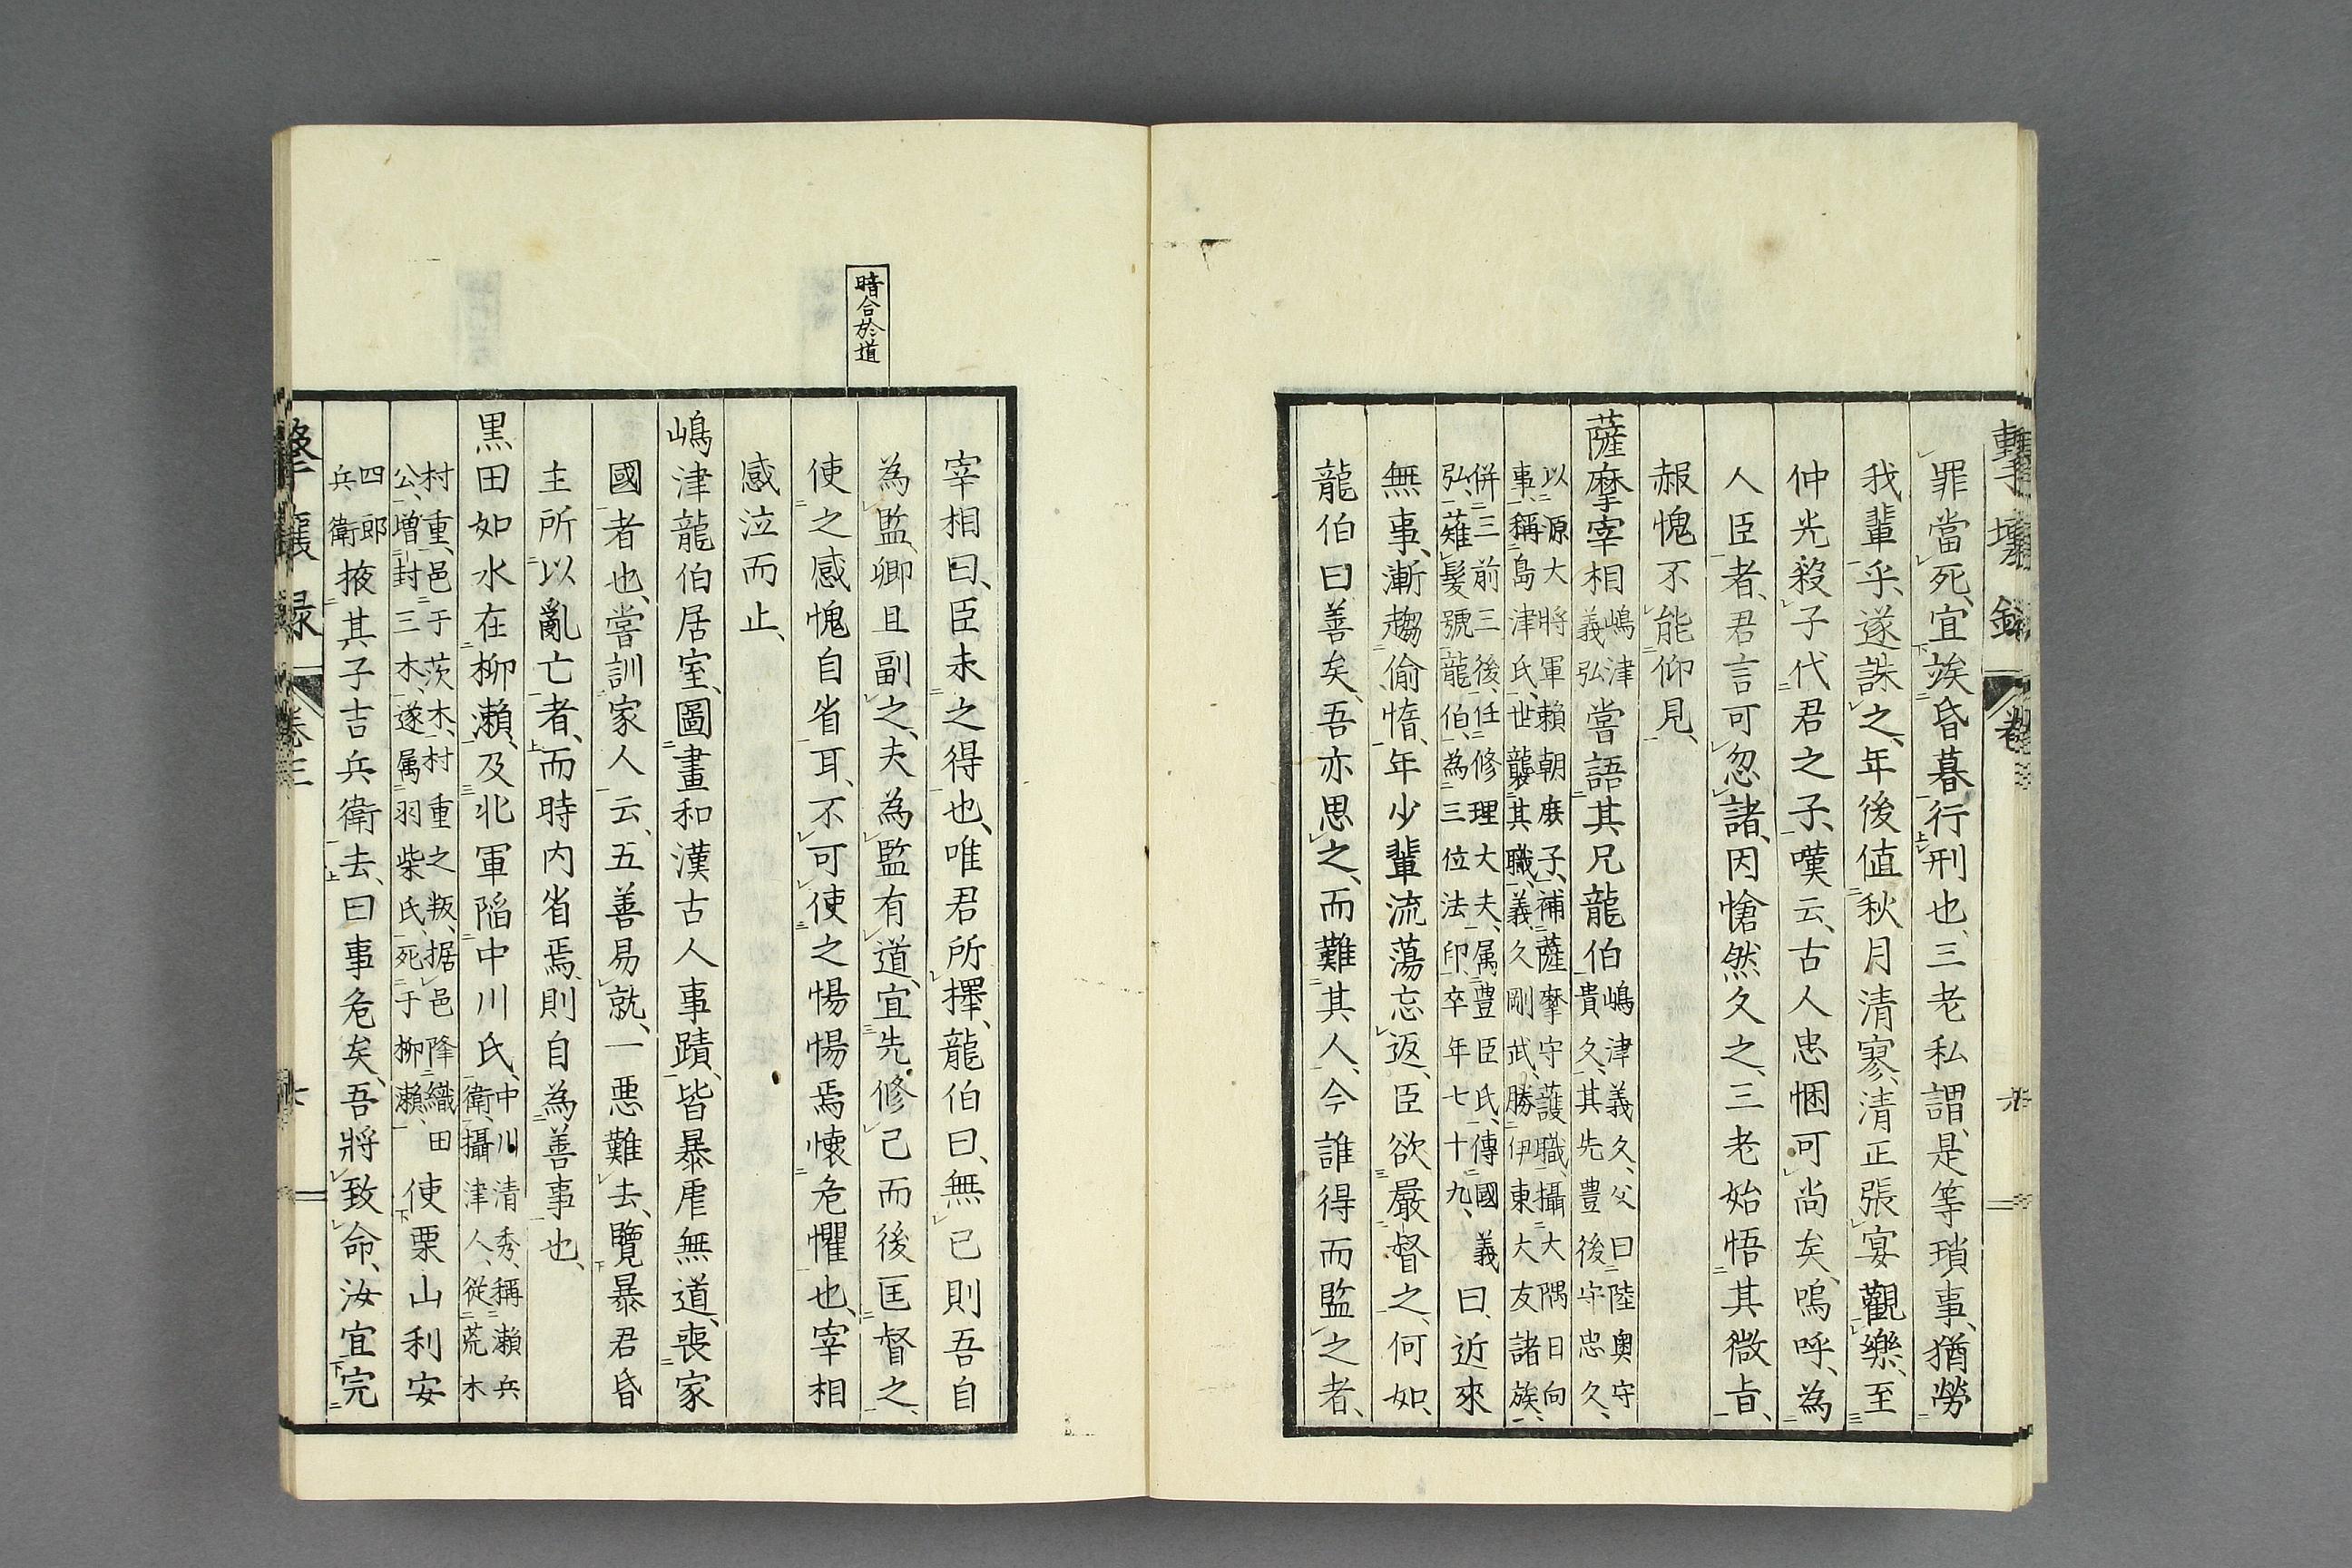 罪當死、宜竢昏暮行刑也、三老私謂、是等瑣事、猶勞
我輩乎、遂誅之、年後値秋月清寥、清正張宴觀樂、至
仲光殺子代君之子、嘆云、古人忠悃可尚矣、嗚呼、為
人臣者、君言可忽諸、因愴然久之、三老始悟其微旨、
赧愧不能仰見、
薩摩宰相
嶋津
義弘
嘗語其兄龍伯
嶋津義久、父曰陸奥守
貴久、其先豊後守忠久、
以源大將軍賴朝庶子、補薩摩守護職、攝大隅日向
事、稱島津氏、世襲其職、義久剛武、勝伊東大友諸族、
併三前三後、任修理大夫、属豊臣氏、傳國義
弘、薙髮號龍伯、為三位法印、卒年七十九、
曰、近來
無事、漸趨偷惰、年少輩流蕩忘返、臣欲嚴督之、何如、
龍伯曰善矣、吾亦思之、而難其人、今誰得而監之者、
暗合於道
宰相曰、臣未之得也、唯君所擇、龍伯曰、無已則吾自
為監、卿且副之、夫為監有道、宜先修己而後匡督之、
使之感愧自省耳、不可使之惕惕焉懐危懼也、宰相
感泣而止、
嶋津龍伯居室、圖畫和漢古人事蹟、皆暴虐無道、喪家
國者也、嘗訓家人云、五善易就、一悪難去、覽暴君昏
主所以亂亡者、而時内省焉、則自為善事也、
黒田如水在柳瀬、及北軍陷中川氏、
中川清秀、稱瀬兵
衛、攝津人、従荒木
村重、邑于茨木、村重之叛、据邑降織田
公、增封三木、遂属羽柴氏、死于柳瀬、
使栗山利安
四郎
兵衛
掖其子吉兵衛去、曰事危矣、吾將致命、汝宜完
撃壤録
卷三